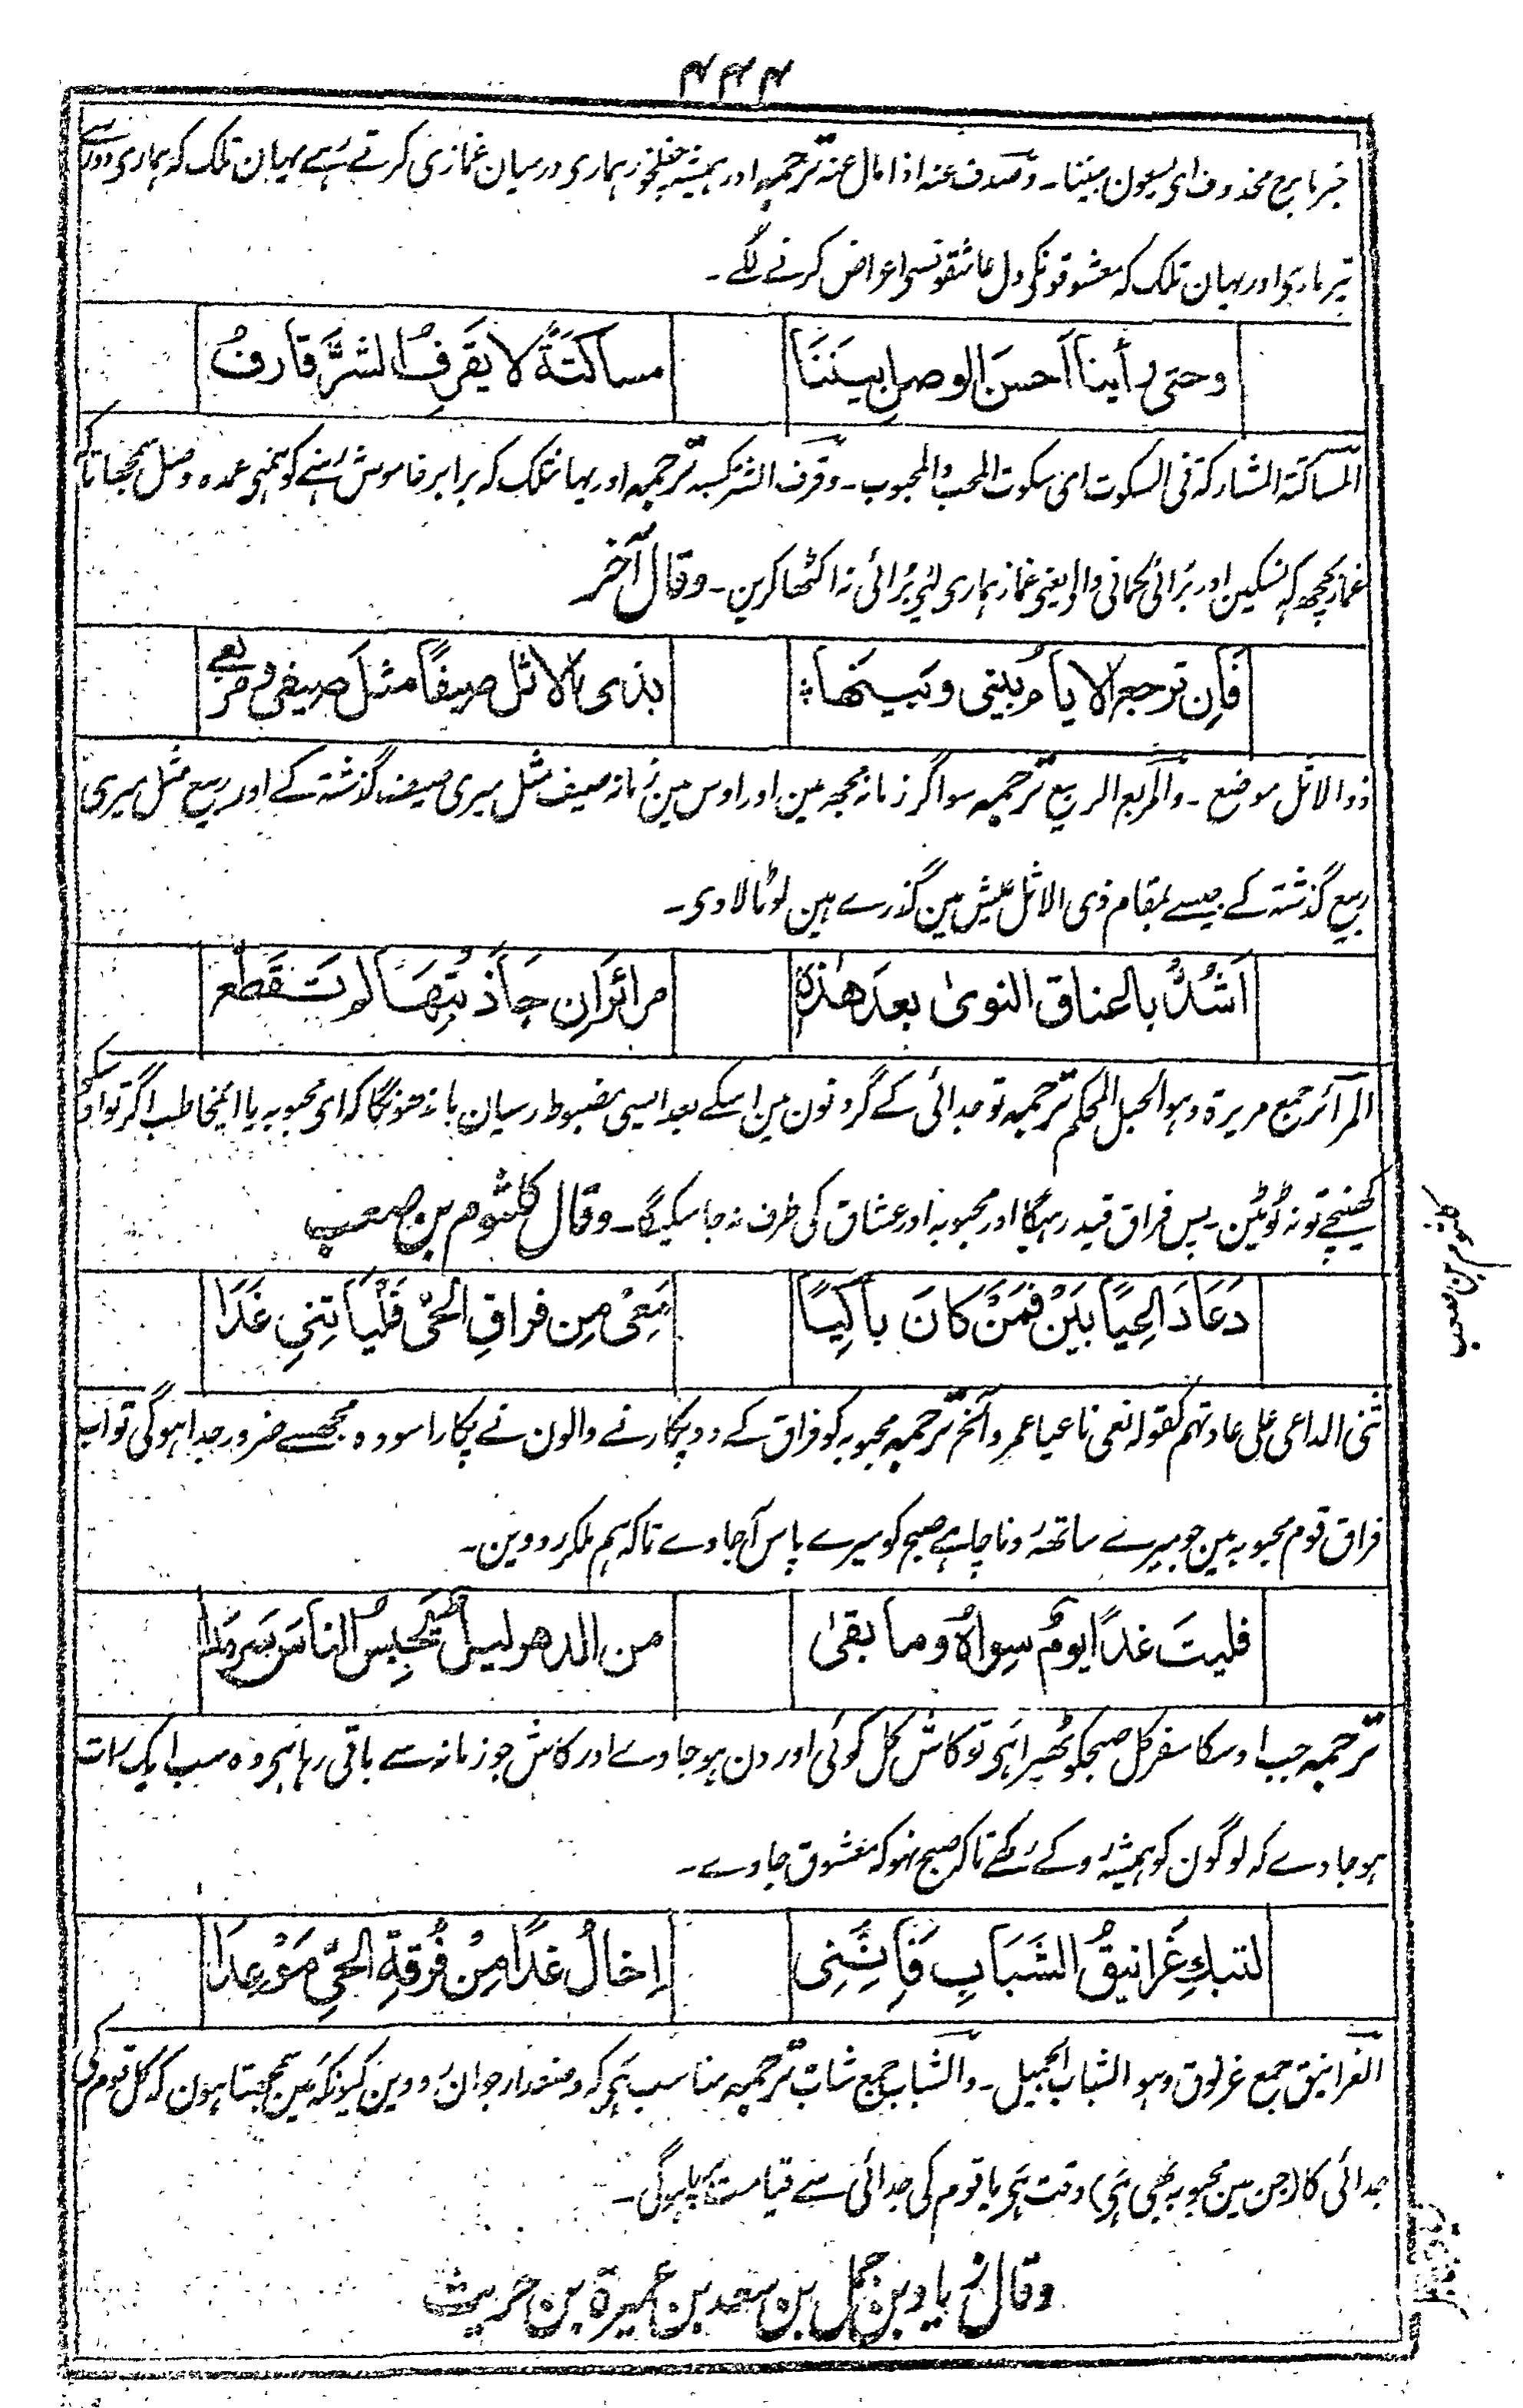 ۴۴۴
خبر ما برح محذوف ای یسعون بیننا۔ وصدف عنہ اذا مال عنہ ترجمہ اور ہمیشہ چغلخور ہماری درمیان غمازی کرتے رہے یہان تلک کہ ہماری دور سے
تیر ماری اور یہان تلک کہ معشوقونکی دل عاشقونسی اعراض کرنے لگے۔
وحتی رأینا اَحسنَ الوصلِ بینَنَا
مساکتَۃً لا یَقرِفُ الشرَّ قارفُ
المساکتۃ المشارکۃ فی السکوت ای سکوت المحب والمحبوب۔ وقرف الشر کسبہ ترجمہ اور یہانتلک کہ برابر خاموش رہنے کو ہمنی عمدہ وصل سمجھا تاکہ
غماز کچھ کہہ نسکین اور برائی کمانی والی یعنی غماز ہماری لئی بُرائی نہ اکٹھا کرین۔ وقال آخر
فَاِن ترجعِ الایامُ بینی وبینها
بذی الاثل صیفاً مثلَ صیفی ومربعی
ذو الاثل موضع۔ والمربع الربیع ترجمہ سو اگر زمانہ مجھہ مین اور اوس مین زمانہ صیف مثل میری صیف گذشتہ کے اور ربیع مثل میری
ربیع گذشتہ کے جیسے بمقام ذی الاثل عیش مین گذرے ہین لوٹا لادی۔
اَشُدُّ باعناق النوی بعدَ هذہٖ
مرائرَ اِن جَاذبتِهَا لم تَقَطَّعِ
المرآئر جمع مریرۃ وہو الحبل المحکم ترجمہ تو جدائی کے گردنون مین اسکے بعد ایسی مضبوط رسیان باندھونگا کہ ای محبوبہ یا ای مخاطب اگر تو اونکو
کھینچے تو نہ ٹوٹین۔ پس فراق قید رہیگا اور محبوبہ اور عشاق کی طرف نہ جا سکیگا۔ وقال کلثوم بن صعب
کلثوم بن صعب
دَعَا دَاعِیَا بَیْنٍ فمَنْ کانَ باکِیًا
مَعِیْ مِن فراقِ الحیِّ فَلْیَاتِنِی غَدَا
ثنی الداعی علی عادتہم کقولہ نعی ناعیا عمرو الخ ترجمہ محبوبہ کو فراق کے دو پکارنے والون نے پکارا سو وہ مجھسے ضرور جدا ہوگی تو اب
فراق قوم محبوبہ مین جو میرے ساتھہ رونا چاہے صبح کو میرے پاس آ جاوے تاکہ ہم ملکر رووین۔
فلیتَ غداً یومٌ سِواہُ وما بقیٰ
من الدهر لیلٌ یَحبِسُ الناسَ سَرمَدا
ترجمہ جب اوسکا سفر کل صبحکو ٹھیرا ہی تو کاش کل کوئی اور دن ہو جاوے اور کاش جو زمانہ سے باقی رہا ہی وہ سب ایک رات
ہو جاوے کہ لوگون کو ہمیشہ روکے رکھے تاکہ صبح نہو کہ معشوق جاوے۔
لتبکِ غَرانیقُ الشَبَابِ فَاِنَّنِی
اِخالُ غدًا مِنْ فُرقۃِ الحیِّ مَوْعِدَا
الغرانیق جمع غرنوق وہو الشاب الجمیل۔ والشباب جمع شاب ترجمہ مناسب ہی کہ وضعدار جوان رووین کیونکہ مین سمجھتا ہون کہ کل قوم کی
جدائی کا (جن مین محبوبہ بھی ہی) وقت ہی یا قوم کی جدائی سے قیامت بپا ہوگی۔
وقال زیاد بن حمل بن سعد بن عمیرۃ بن حریث